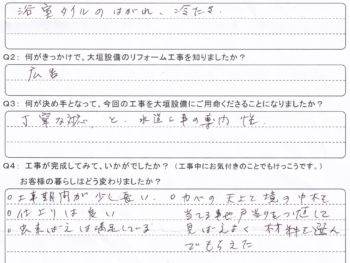 浴室タイルのはがれ、冷たさ
Q2: 何がきっかけで、大垣設備のリフォーム工事を知りましたか？
広告
Q3: 何が決め手となって、今回の工事を大垣設備にご用命くださることになりましたか？
丁寧な対応と、水道工事の専門性。
Q4: 工事が完成してみて、いかがでしたか？（工事中にお気付きのことでもけっこうです。）
お客様の暮らしはどう変わりましたか？
○工事期間が少し長い。
○仕上りは良い
○出来ばえは満足している
○カベの天上と境の中木を
当てる事 戸当りをつ して
見ばえよく 材料を選ん
でもらえた